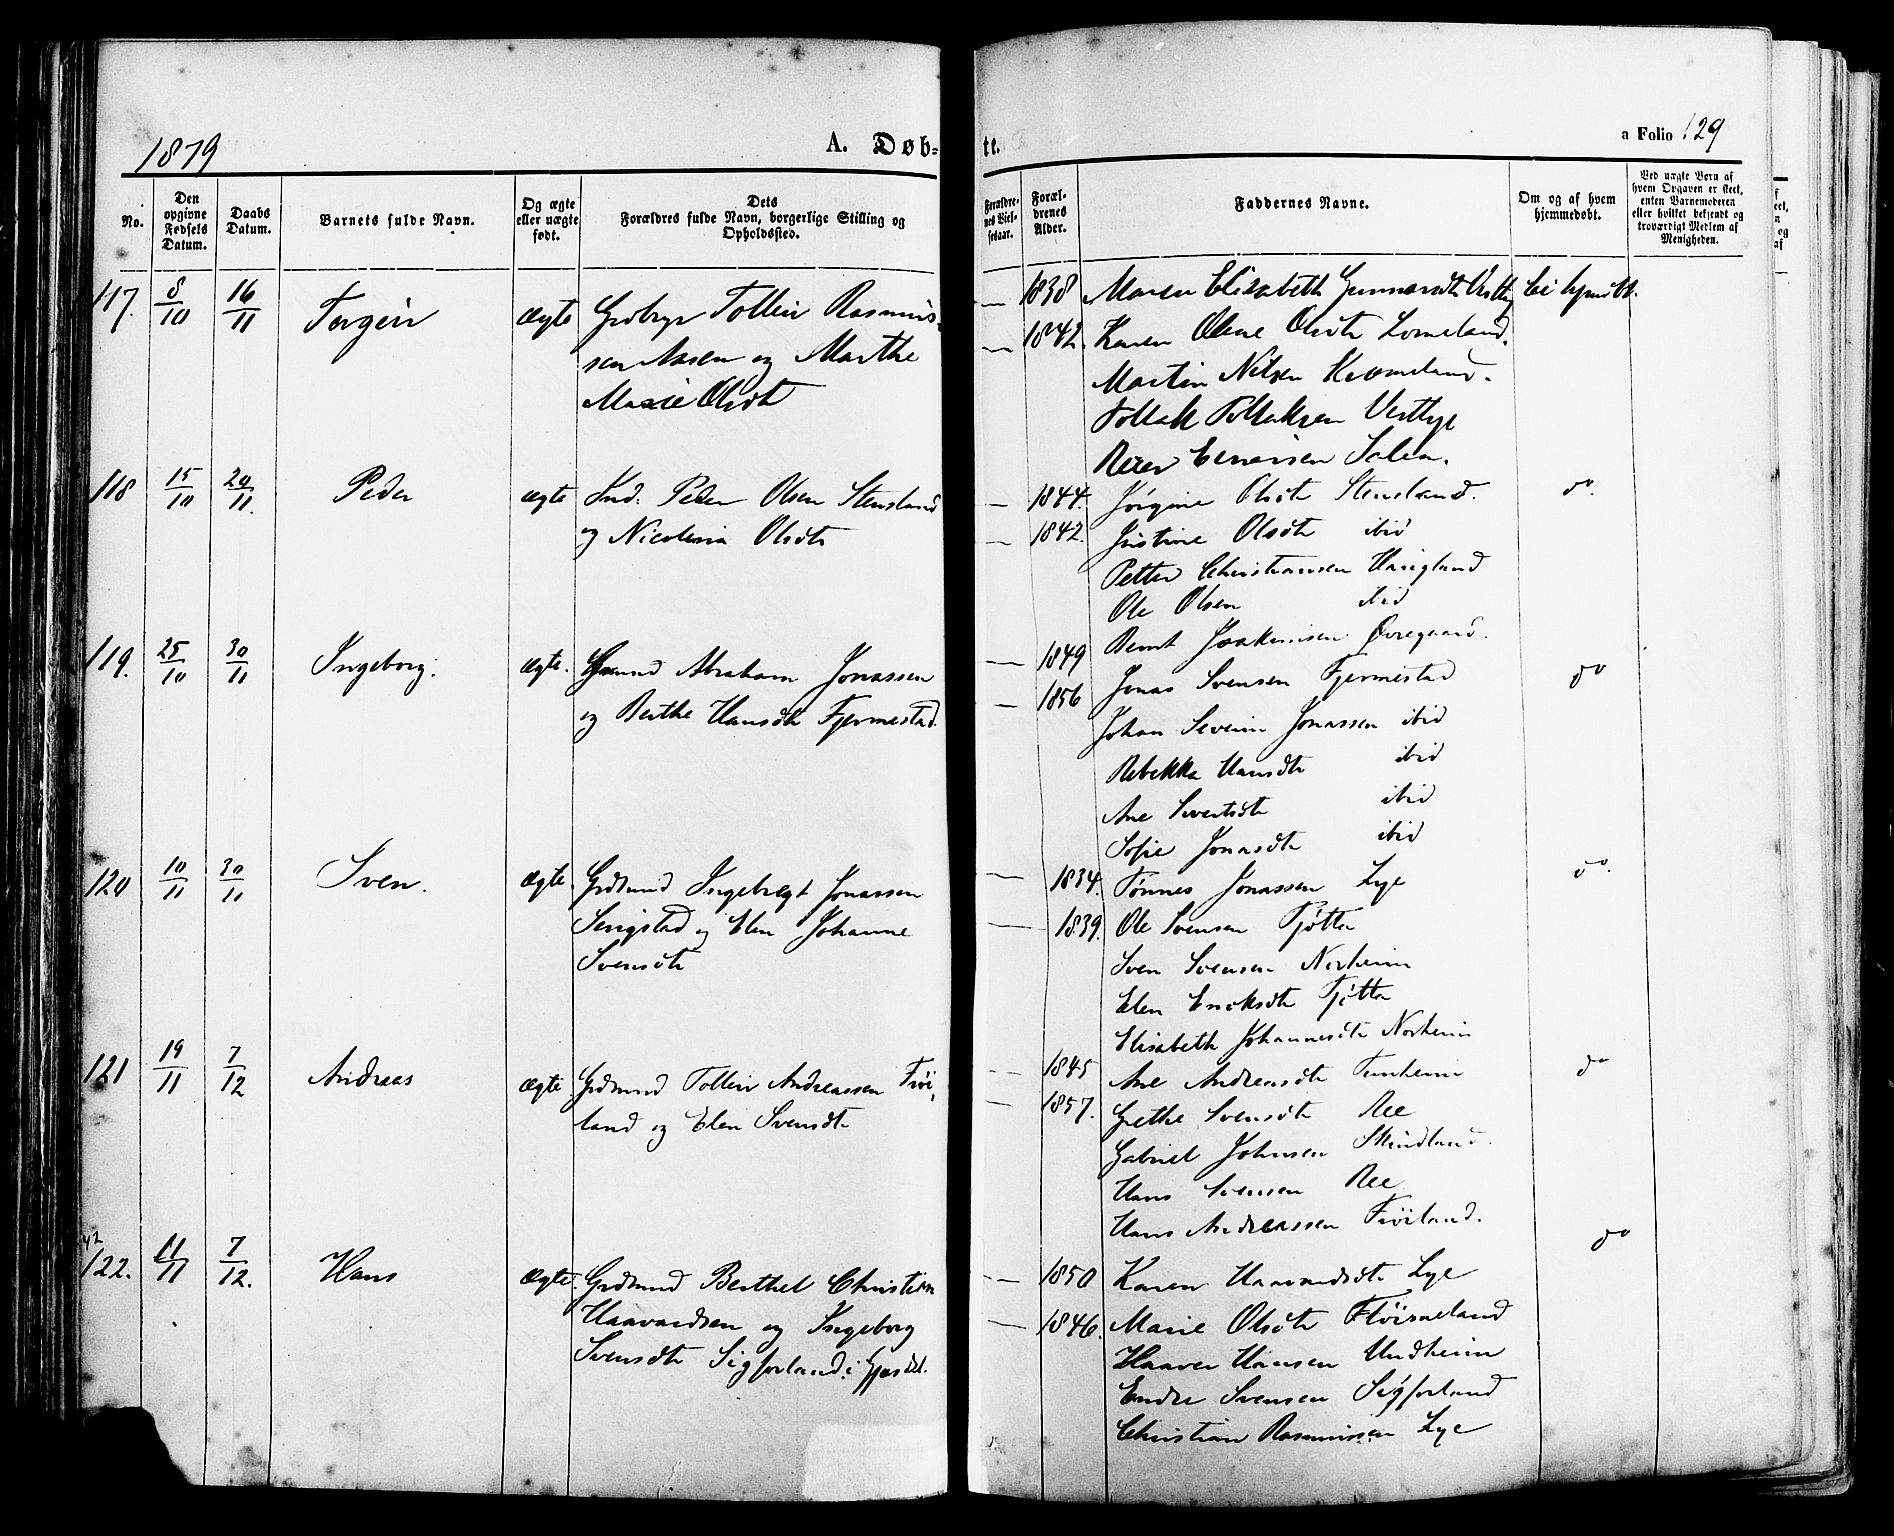 1879
A. Døb-
tt.
a Folio 129
No.
Den opgivne Fødsels Datum.
Daabs Datum.
Barnets fulde Navn.
Og ægte eller uægte født.
Dets Forældres fulde Navn, borgerlige Stilling og Opholdssted.
Forældrenes Vielsesaar.
Forældrenes Alder.
Faddernes Navne.
Om og af hvem hjemmedøbt.
Ved uægte Børn af hvem Opgaven er skeet, enten Barnemoderen eller hvilket bekjendt og troværdigt Medlem af Menigheden.
117. 8/10 16/11 Torgeir ægte Grdbrgr Tollein Rasmus-
sen Aasen og Marthe
Marie Olsdt
— 1838 Maren Elisabeth Gunnarsdt Vestly ei hjmdbt.
— 1842. Karen Olene Olsdt Lomeland.
Martin Nilsen Kvomeland.
Tollak Tollaksen Vestlye
Reier Einersen Salen.
118 15/10 20/11 Peder ægte Ind: Peder Olsen Stensland
og Nicolina Olsdt
— 1844. Jørgine Olsdt Stensland. do.
— 1842. Justine Olsdt ibid
Petter Christiansen Haugland
Ole Olsen ibid
Bernt Joakimsen Øvregaard.
119. 25/10 30/11 Ingeborg. ægte. Grmnd Abraham Jonassen
og Berthe Hansdt Fjermestad.
— 1849 Jonas Svensen Fjermestad do
— 1856 Johan Severin Jonassen ibid
Rebekka Hansdt ibid
Ane Sivertsdt ibid
Sofie Jonasdt ibid
120 10/11 30/11 Sven. ægte Grdmnd Ingebregt Jonassen
Serigstad og Elen Johanne
Svensdt
— 1834. Tønnes Jonassen Lye do.
— 1839. Ole Svensen Tjøtta
Sven Svensen Norheim
Elen Eriksdt Tjøtta
Elisabeth Johannesdt Norheim
121 19/11 7/12 Andreas ægte Grdmnd Tollein Andreassen Frøi-
land og Elen Svensdt
— 1845 Ane Andreasdt Tunheim do
— 1857. Grethe Svensdt Ree
Gabriel Johnsen Skindland.
Hans Svensen Ree
Hans Andreassen Frøiland.
42
122. 11/11 7/12. Hans ægte. Grdmnd Berthel Christian
Haavardsen og Ingeborg
Svensdt Sigforland i Gjesdal.
— 1850 Karen Haavardsdt Lye do
— 1846. Marie Olsdt Fløisneland
Haaver Hansen Undheim
Endre Svensen Sigforland
Christian Rasmussen Lye